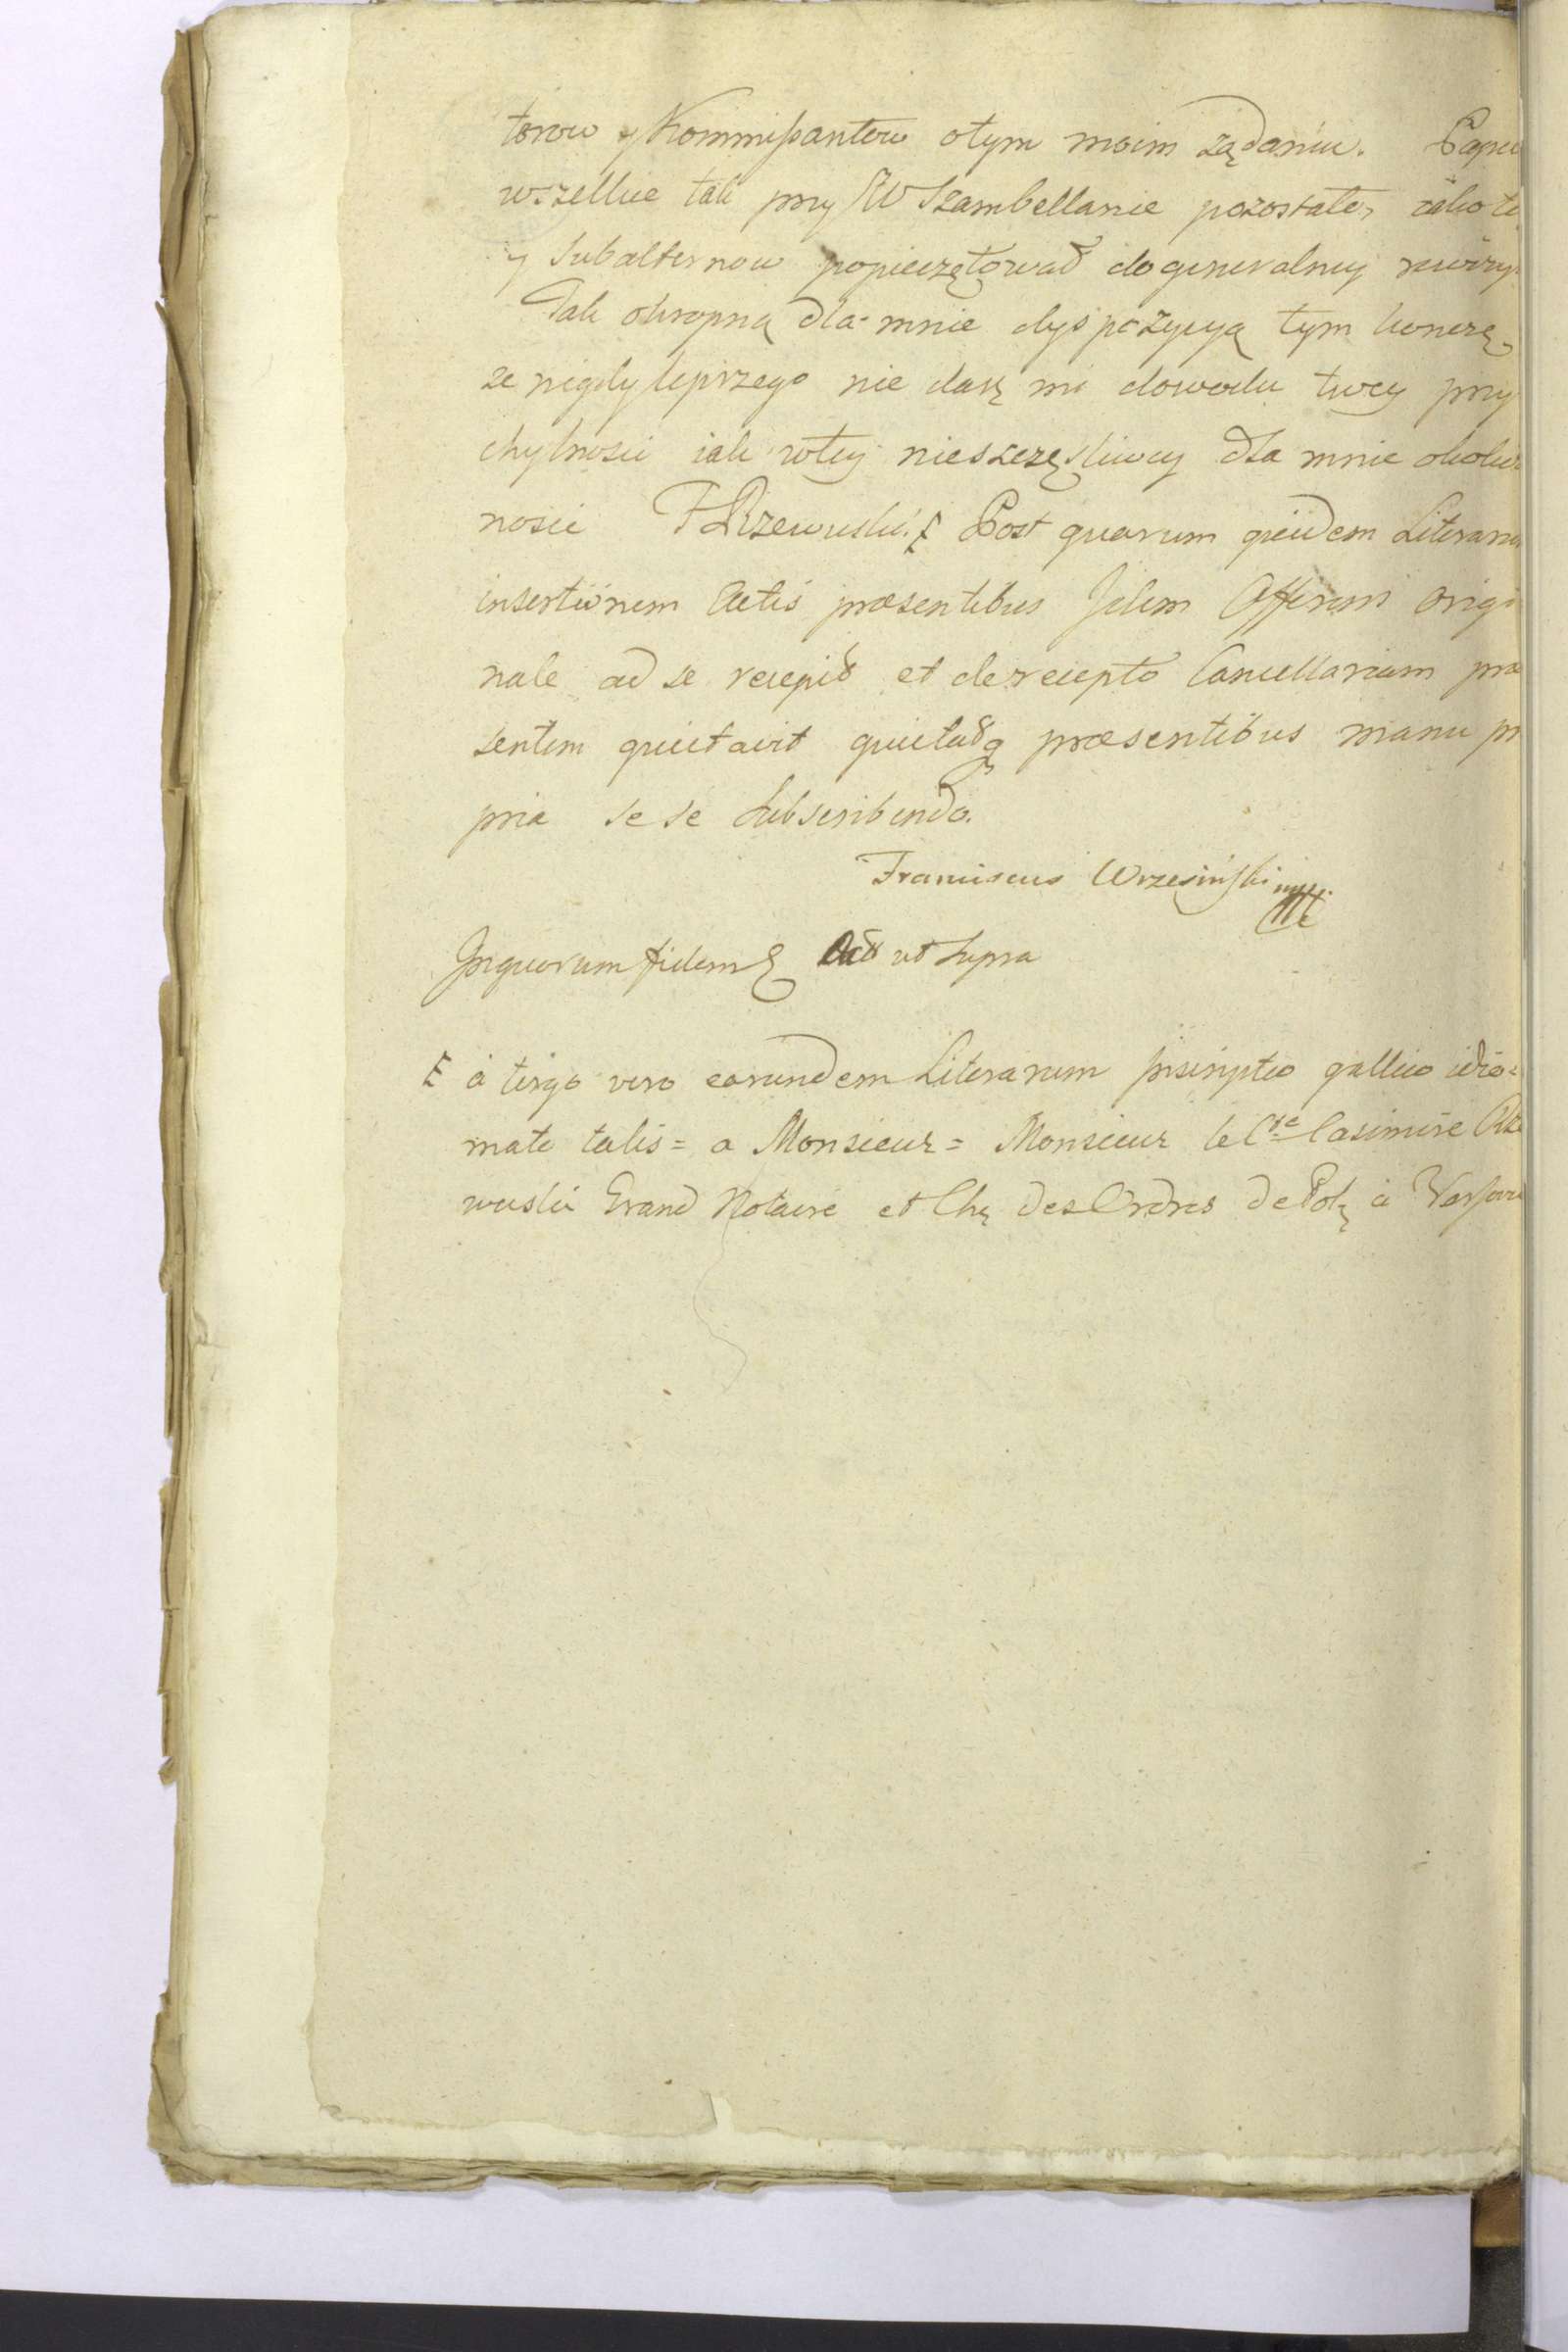 torow y Kommissantow o tym moim żądaniu. Papie
wszelkie tak przy JW Szambellanie pozostałe, iako te
y Subalternow popieczętować do generalney rewizy
Tak okropną dla mnie dyspozycyą tym kończę,
że nigdy lepszego nie dasz mi dowodu twey przy
chylności iak w tey nieszczęśliwey dla mnie okolicz
ności F Rzewuski. Post quarum quidem Literarum
insertionem Actis præsentibus Idem Offerens origi
nale ad se recepit et de recepto Cancellariam præ
sentem quietavit quietatq præsentibus manu pro
pria se se Subscribendo.
Franciscus Wrzesiński mpp
In quorum fidem Act ut Supra
E à tergo vero earundem Literarum Inscriptio gallico idio=
mate talis = a Monsieur = Monsieur le Cte Casimire Rze
wuski Grand Notaire et Ch des Ordres de Pol à Varsovi